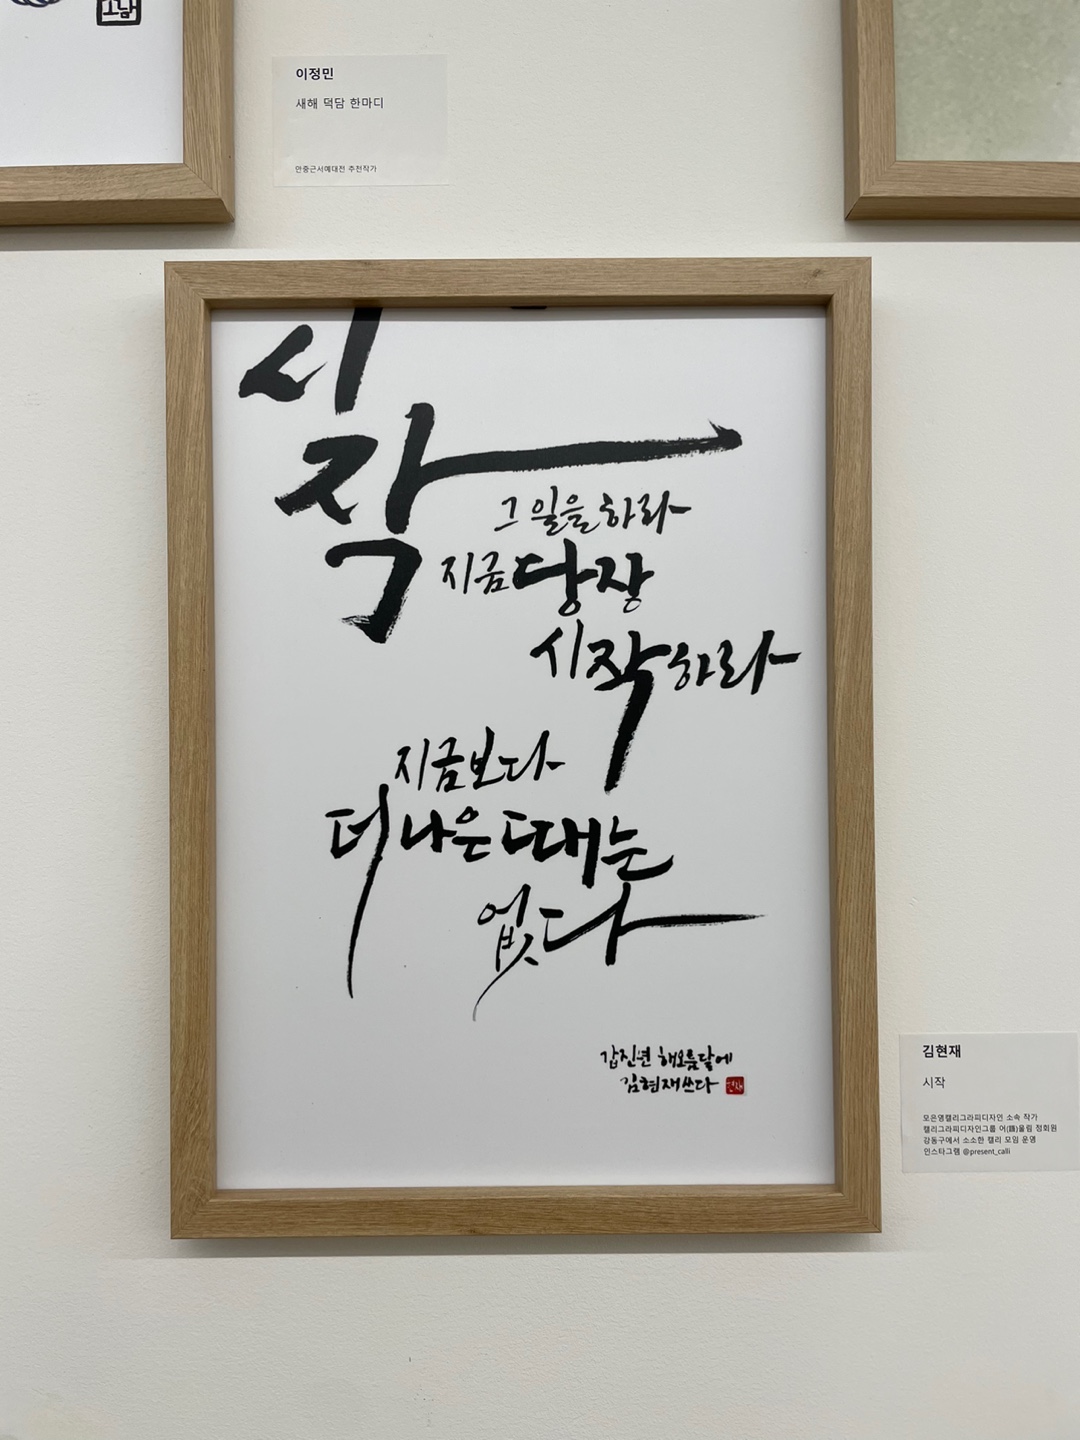 소남
이정민
새해 덕담 한마디
안중근서예대전 추천작가
시
작
그 일을 하라
지금 당장
시작하라
지금보다
더 나은 때는
없다
갑진년 해오름달에
김현재 쓰다
현재
김현재
시작
모은영캘리그라피디자인 소속 작가
캘리그라피디자인그룹 어(語)울림 정회원
강동구에서 소소한 캘리 모임 운영
인스타그램 @present_calli